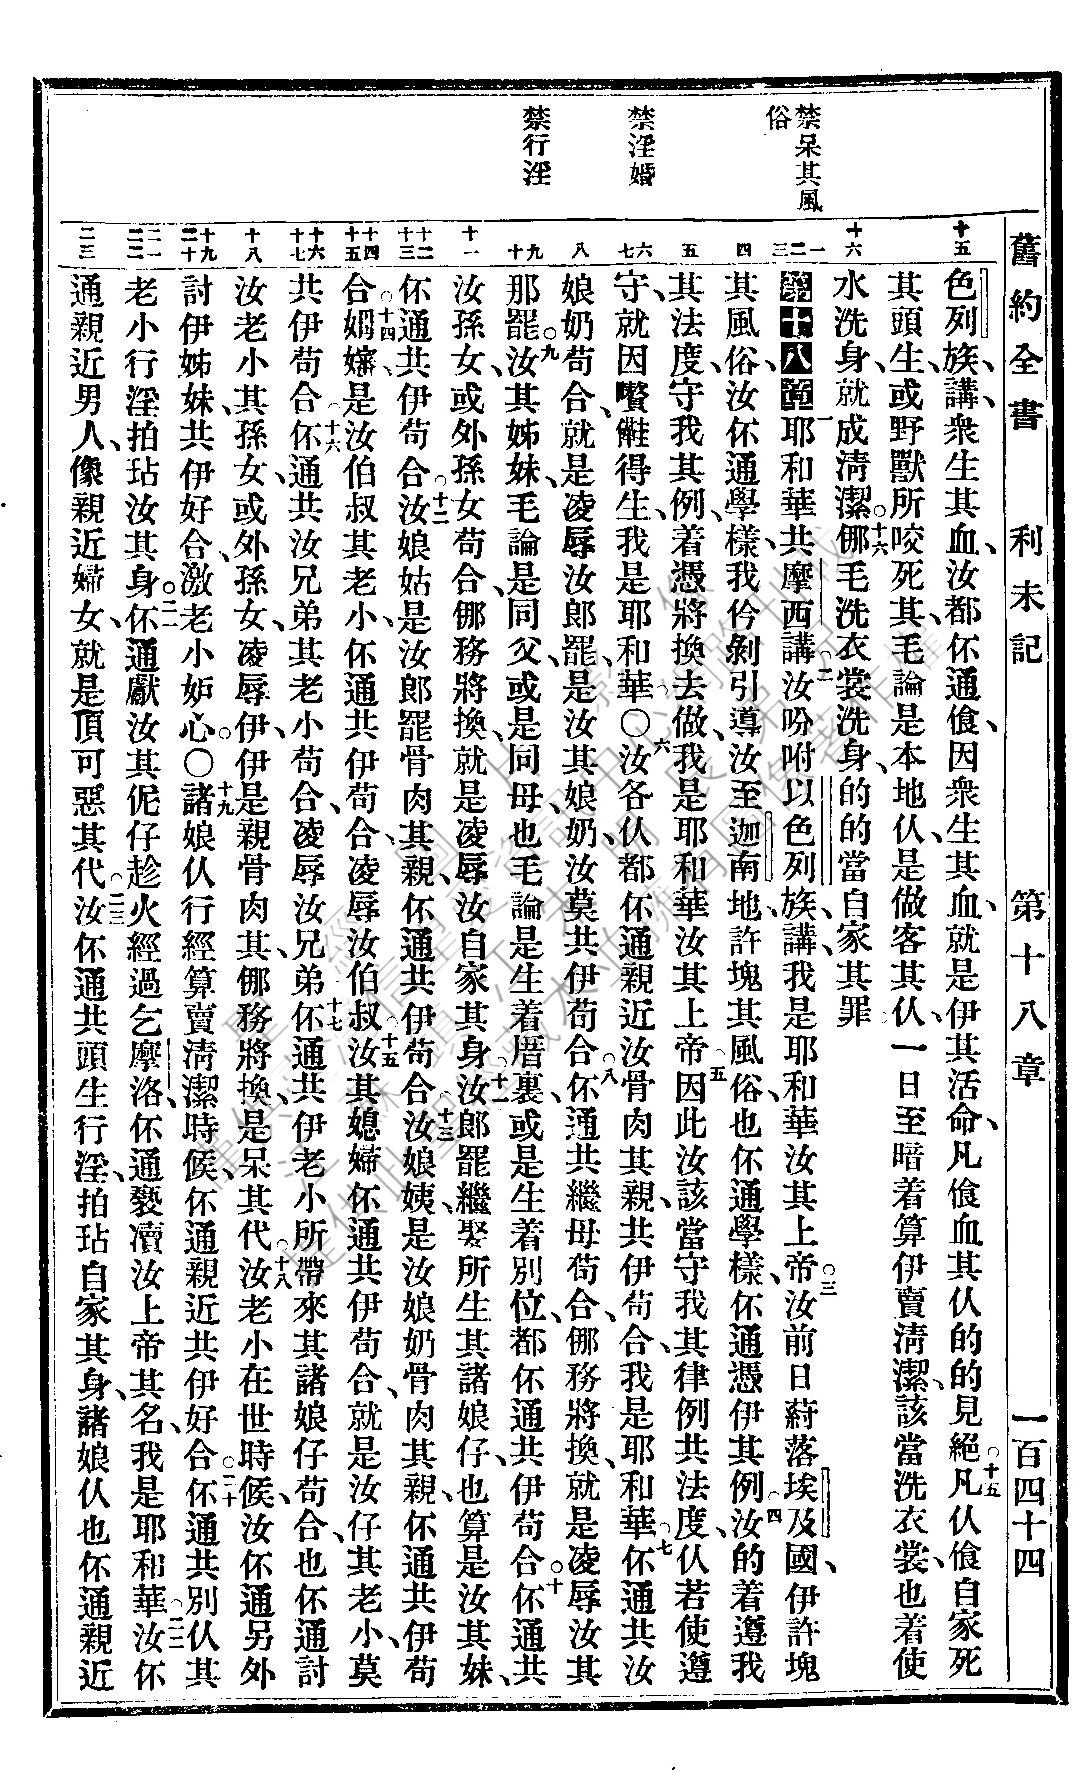 舊約全書 利未記 第十八章 一百四十四
禁呆其風俗
禁淫婚
禁行淫
十五
色列族、講、衆生其血、汝都伓通食、因衆生其血、就是伊其活命、凡食血其仈的的見絕。十五凡仈食自家死
其頭生、或野獸所咬死其、毛論是本地仈、是做客其仈、一日至暗着算伊賣清潔、該當洗衣裳、也着使
十六
水洗身、就成清潔。十六哪毛洗衣裳洗身、的的當自家其罪
一二三
第十八章 一耶和華共摩西講、二汝吩咐以色列族、講、我是耶和華汝其上帝。三汝前日蒔落埃及國、伊許塊
四
其風俗、汝伓通學樣、我仱剝引導汝至迦南地、許塊其風俗也伓通學樣、伓通憑伊其例。四汝的着遵我
五
其法度、守我其例、着憑將換去做、我是耶和華汝其上帝。五因此汝該當守我其律例共法度、仈若使遵
六七
守、就因嚽𠆧得生、我是耶和華。〇六汝各仈都伓通親近汝骨肉其親、共伊苟合、我是耶和華。七伓通共汝
八
娘奶苟合、就是凌辱汝郎罷、是汝其娘奶、汝莫共伊苟合。八伓通共繼母苟合、哪務將換、就是凌辱汝其
九十
那罷。九汝其姊妹、毛論是同父、或是同母、也毛論是生着厝裏、或是生着別位、都伓通共伊苟合。十伓通共
十一
汝孫女、或外孫女苟合、哪務將換、就是凌辱汝自家其身。十一汝郎罷繼娶所生其諸娘仔、也算是汝其妹、
十二十三
伓通共伊苟合。十二汝娘姑、是汝郎罷骨肉其親、伓通共伊苟合。十三汝娘姨、是汝娘奶骨肉其親、伓通共伊苟
十四十五
合。十四嫺嬸、是汝伯叔其老小、伓通共伊苟合、凌辱汝伯叔。十五汝其媳婦、伓通共伊苟合、就是汝仔其老小、莫
十六十七
共伊苟合。十六伓通共汝兄弟其老小苟合、凌辱汝兄弟。十七伓通共伊老小所帶來其諸娘仔苟合、也伓通討
十八
汝老小其孫女、或外孫女、凌辱伊、伊是親骨肉其、哪務將換、是呆其代。十八汝老小在世時候、汝伓通另外
十九二十
討伊姊妹、共伊好合、激老小妒心。〇十九諸娘仈行經算賣清潔時候、伓通親近共伊好合。二十伓通共別仈其
二一二二
老小行淫、拍玷汝其身。二一伓通獻汝其伲仔、趁火經過乞摩洛、伓通褻瀆汝上帝其名、我是耶和華。二二汝伓
二三
通親近男人、像親近婦女、就是頂可惡其代。二三汝伓通共頭生行淫、拍玷自家其身、諸娘仈也伓通親近